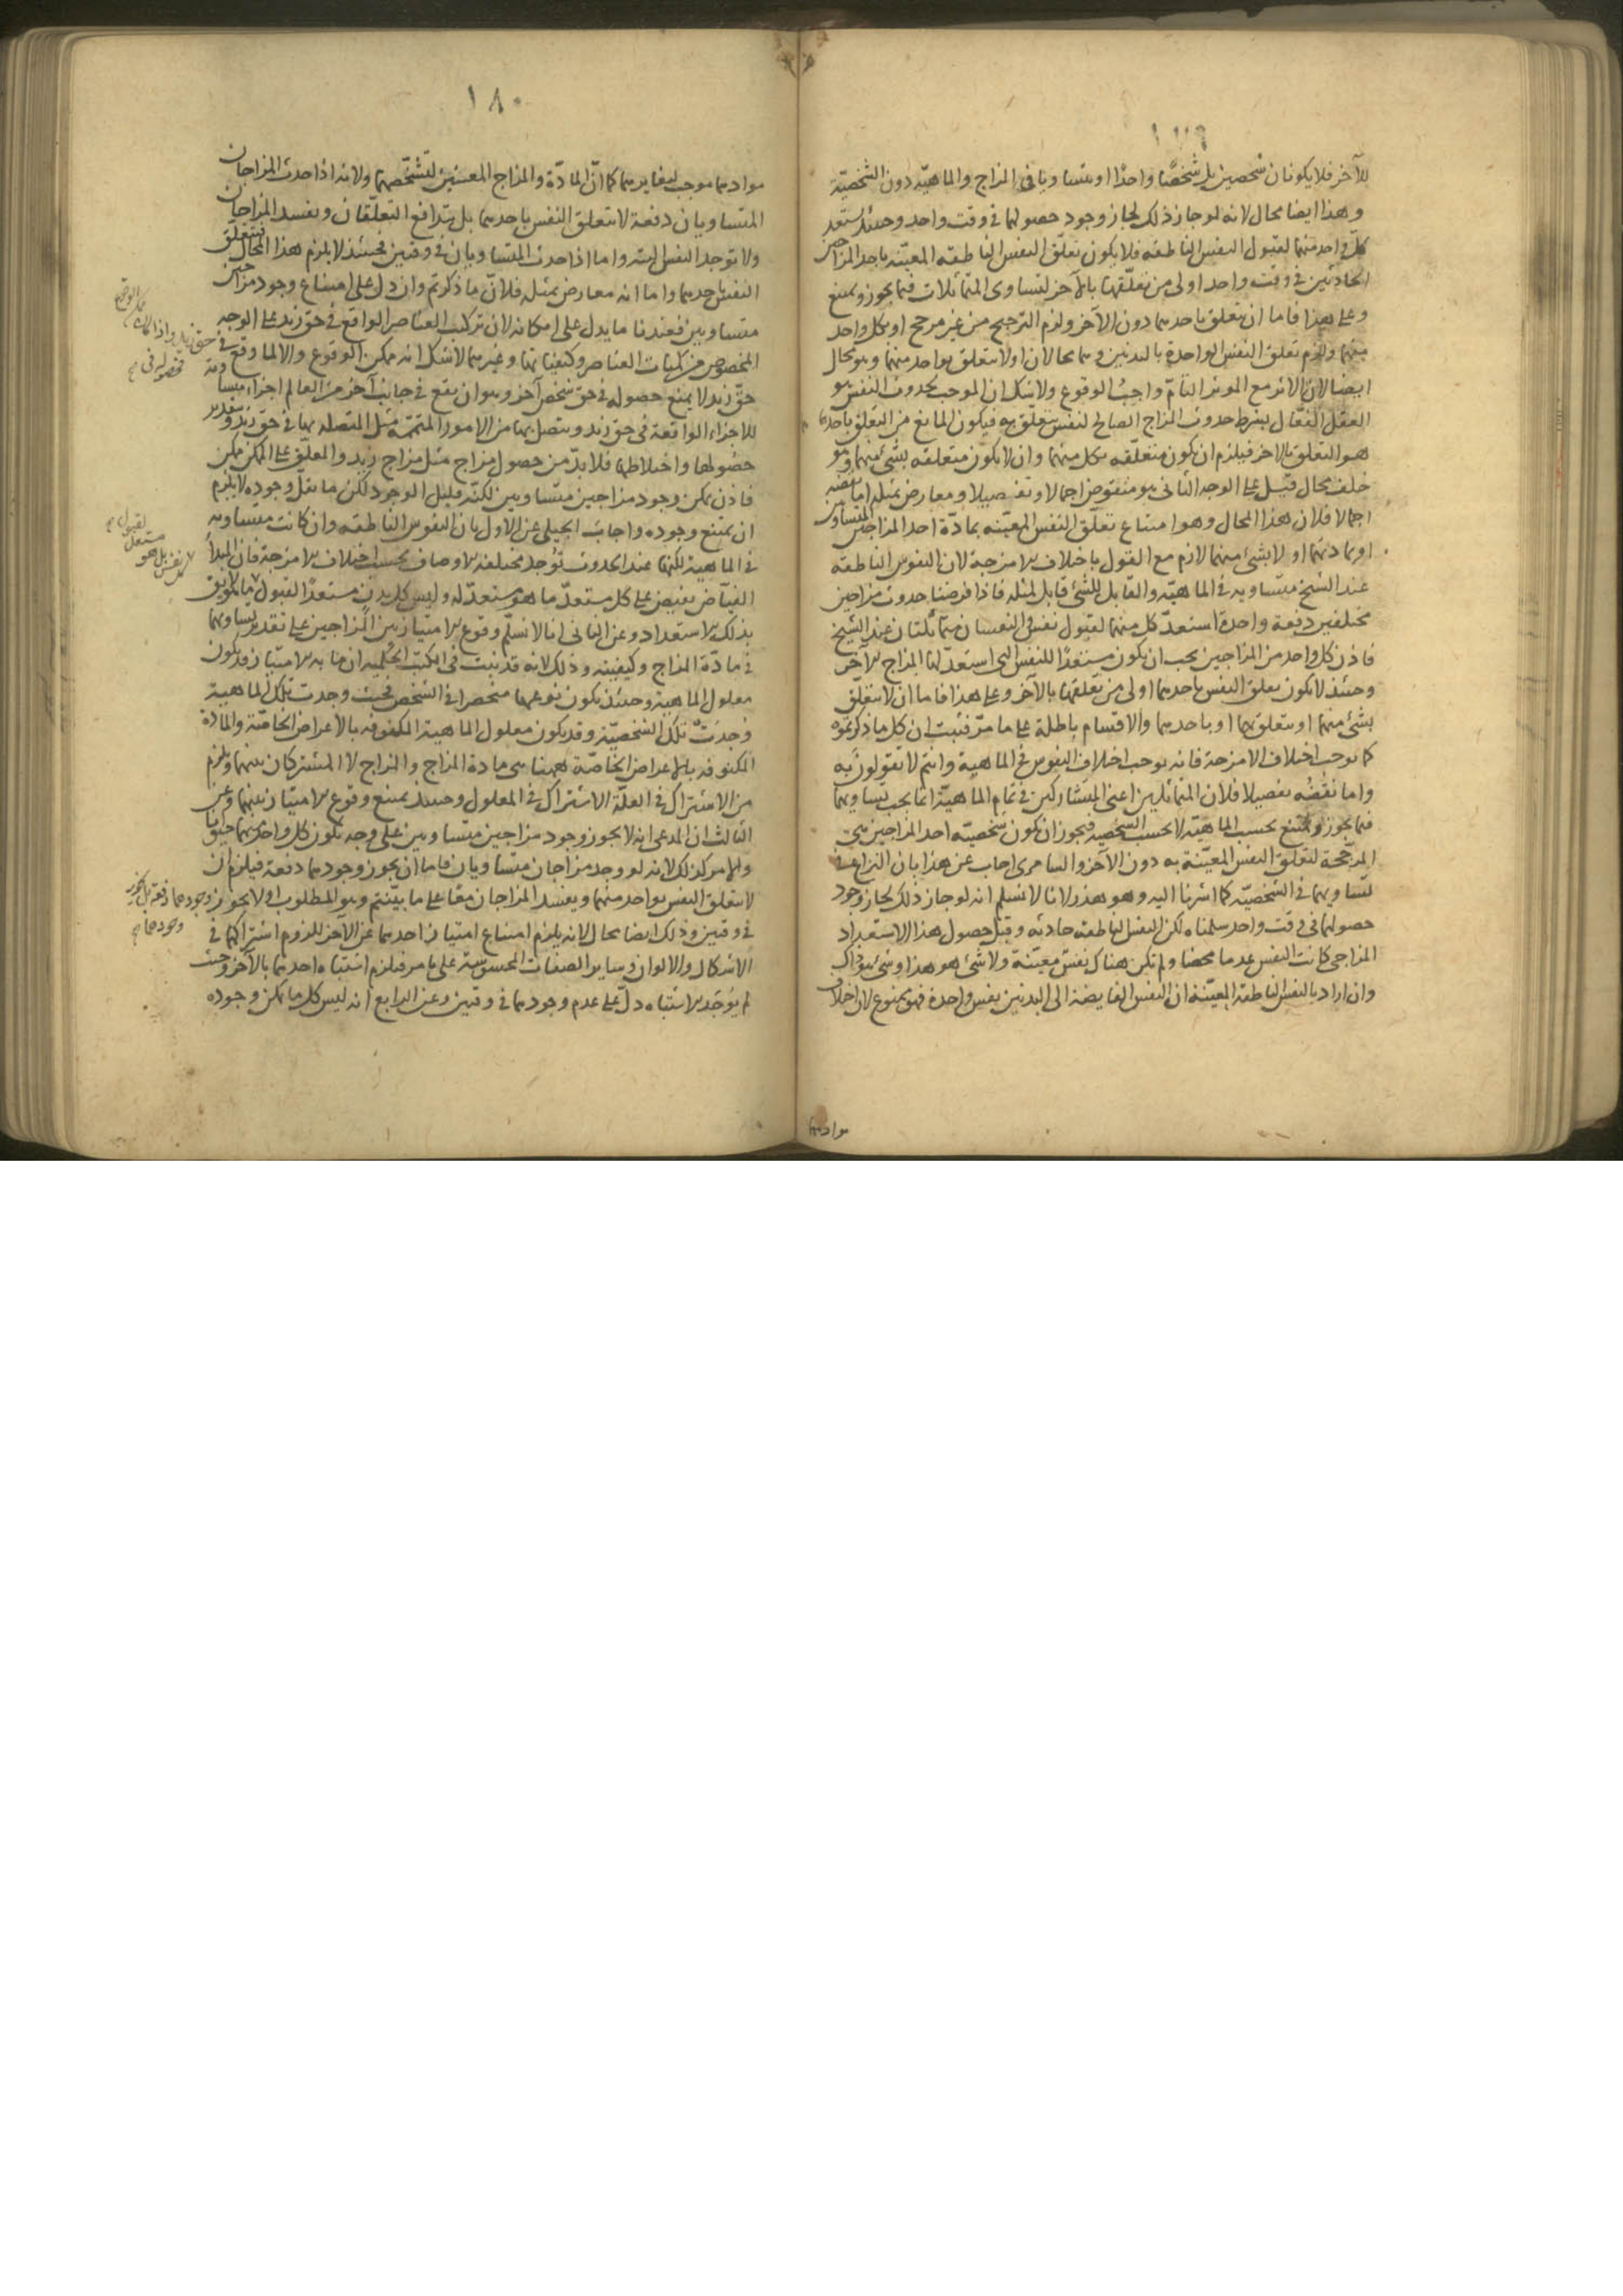 ١٧٩
للآخر فلا يكونان شخصين بل شخصًا واحدًا او يتساويا فى المزاج والماهيّة دون الشخصيّة
وهذا ايضا محال لانه لو جاز ذلك لجاز وجود حصولهما فى وقت واحد وحينئذ يستعد
كلّ واحد منهما لقبول النفس الناطقه فلا يكون تعلّق النفس الناطقه المعيّنه باحد المزاجين
الحادثين فى وقت واحد اولى من تعلّقها بالآخر لتساوى المتماثلات فيما يجوز ويمتنع
وعلى هذا فاما ان يتعلق باحدهما دون الآخر ولزم الترجيح من غير مرجح او بكل واحد
منهما ولزم تعلق النفس الواحدة بالبدنين وهما محالان او لا يتعلق بواحد منهما وهو محال
ايضا لان الاثر مع الموثر التامّ واجبُ الوقوع ولا شك ان الموجب لحدوث النفس هو
العقل الفعّال بشرط حدوث المزاج الصالح لنفس تتعلّق به فيكون المانع من التعلق باحدهما
هو التعلق بالاخر فيلزم ان يكون متعلّقه بكل منهما وان لا يكون متعلقه بشئ منهما وهو
خلف محال قيل على الوجه الثانى هو منقوض اجمالا وتفصيلا ومعارض بمثله اما نقضه
اجمالا فلان هذا المحال وهو امتناع تعلّق النفس المعيّنه بمادّة احد المزاجين المتساويين
او بمادتهما او لا بشئ منهما لازم مع القول باختلاف الامزجة لان النفوس الناطقه
عند الشيخ متساويه فى الماهيّه والقابل للشئ قابل لمثله فاذا فرضنا حدوث مزاجين
مختلفين دفعة واحدة استعدّ كل منهما لقبول نفس والنفسان متماثلتان عند الشيخ
فاذن كل واحد من المزاجين يجب ان يكون مستعدًا للنفس التى استعدّ لها المزاج الآخر
وحينئذ لا يكون تعلق النفس باحدهما اولى من تعلّقها بالآخر وعلى هذا فاما ان لا يتعلّق
بشئ منهما او يتعلق بهما او باحدهما والاقسام باطلة على ما مرّ فثبت ان كل ما ذكرتموه
كما يوجب اختلاف الامزجة فانه يوجب اختلاف النفوس فى الماهية وانتم لا تقولون به
واما نقضُه تفصيلا فلان المتماثلين اعنى المتشاركين فى تمام الماهيّة انما يجب تساويهما
فيما يجوز ويمتنع بحسب الماهيّة لا بحسب الشخصيه فيجوز ان يكون شخصيّة احد المزاجين هى
المرجّحة لتعلّق النفس المعيّنة به دون الآخر والسامرى اجاب عن هذا بان النزاع فى
تساويهما فى الشخصيّه كما اشرنا اليه وهو هذر لانا لا نسلم انه لو جاز ذلك لجاز وجود
حصولهما فى وقت واحد سلمناه لكن النفس الناطقه حادثه وقبل حصول هذا الاستعداد
المزاجى كانت النفس عدما محضا ولم تكن هناك نفس معيّنة ولا شئ هو هذا وشئ هو ذاك
وان اراد بالنفس الناطقه المعيّنة ان النفس الفايضة الى البدنين نفس واحدة فهو ممنوع لان اختلاف
موادهما
١٨٠
موادهما موجب لتغايرهما كما انّ المادّة والمزاج المعينين لتشخّصهما ولانه اذا حدث المزاجان
المتساويان دفعة لا يتعلق النفس باحدهما بل يتدافع التعلّقان ويفسد المزاجان
ولا توجد النفس البته واما اذا حدث المتساويان فى وقتين فحينئذ لا يلزم هذا المحال فيتعلّق
النفس باحدهما واما انه معارض بمثله فلانّ ما ذكرتم وان دل على امتناع وجود مزاجين
متساويين فعندنا ما يدل على امكانه لان تركب العناصر الواقع فى حق زيد على الوجه
المخصوص من كميات العناصر وكيفياتها وغيرهما لا شك انه ممكن الوقوع والا لما وقع فى
حقّ زيد لا يمتنع حصوله فى حق شخص آخر وهو ان يقع فى جانب آخر من العالم اجزاء مساويه
للاجزاء الواقعة فى حق زيد ويتصل بها من الامور المتممه مثل المتصله بها فى حق زيد وبتقدير
حصُولها واختلاطها فلا بدّ من حصول مزاج مثل مزاج زيد والمعلّق على الممكن ممكن
فاذن يمكن وجود مزاجين متساويين لكنّه قليل الوجود لكن ما يقلّ وجوده لا يلزم
ان يمتنع وجوده واجابَ الجيلى عن الاول بان النفوس الناطقه وان كانت متساويه
فى الماهية لكنها عند الحدوث تُوجد مختلفه الاوصاف بحسب اختلاف الامزجة فان المبدأ
الفيّاض يفيض على كل مستعدّ ما هو مستعدّ له وليس كل بدن مستعدًا لقبول ما يليق
بذلك الاستعداد وعن الثانى انا لا نسلّم وقوع الامتياز بين المزاجين على تقدير تساويهما
فى مادّة المزاج وكيفيته وذلك لانه قد ثبت فى الكتب الحكمية ان ما به الامتياز قد يكون
معلول الماهية وحينئذ يكون نوعها منحصرا فى الشخص فحيث وجدت تلك الماهية
وُجدَتْ تلك الشخصيّة وقد يكون معلول الماهية المكنوفه بالاعراض الخاصّة والمادة
المكنوفه بالاعراض الخاصّة ههنا هى مادة المزاج والمزاج لا المشتركان بينهما ويلزم
من الاشتراك فى العلّة الاشتراك فى المعلول وحينئذ يمتنع وقوع الامتياز بينهما وعن
الثالث ان المدعى انه لا يجوز وجود مزاجين متساويين على وجه يكون كل واحد منهما
والامر كذلك لانه لو وجد مزاجان متساويان فاما ان يجوز وجودهما دفعة فيلزم ان
لا يتعلق النفس بواحد منهما ويفسد المزاجان معًا على ما بيّنتم وهو المطلوب او لا يجوز وجودهما دفعة بل يجوز وجودهما
فى وقتين وذلك ايضا محال لانه يلزم امتناع امتياز احدهما عن الآخر للزوم اشتراكهما فى
الاشكال والالوان وساير الصفات المحسوسة على ما مر فيلزم اشتباه احدهما بالآخر وحيث
لم يُوجَد الاشتباه دلّ على عدم وجودهما فى وقتين وعن الرابع انه ليس كل ما يمكن وجوده